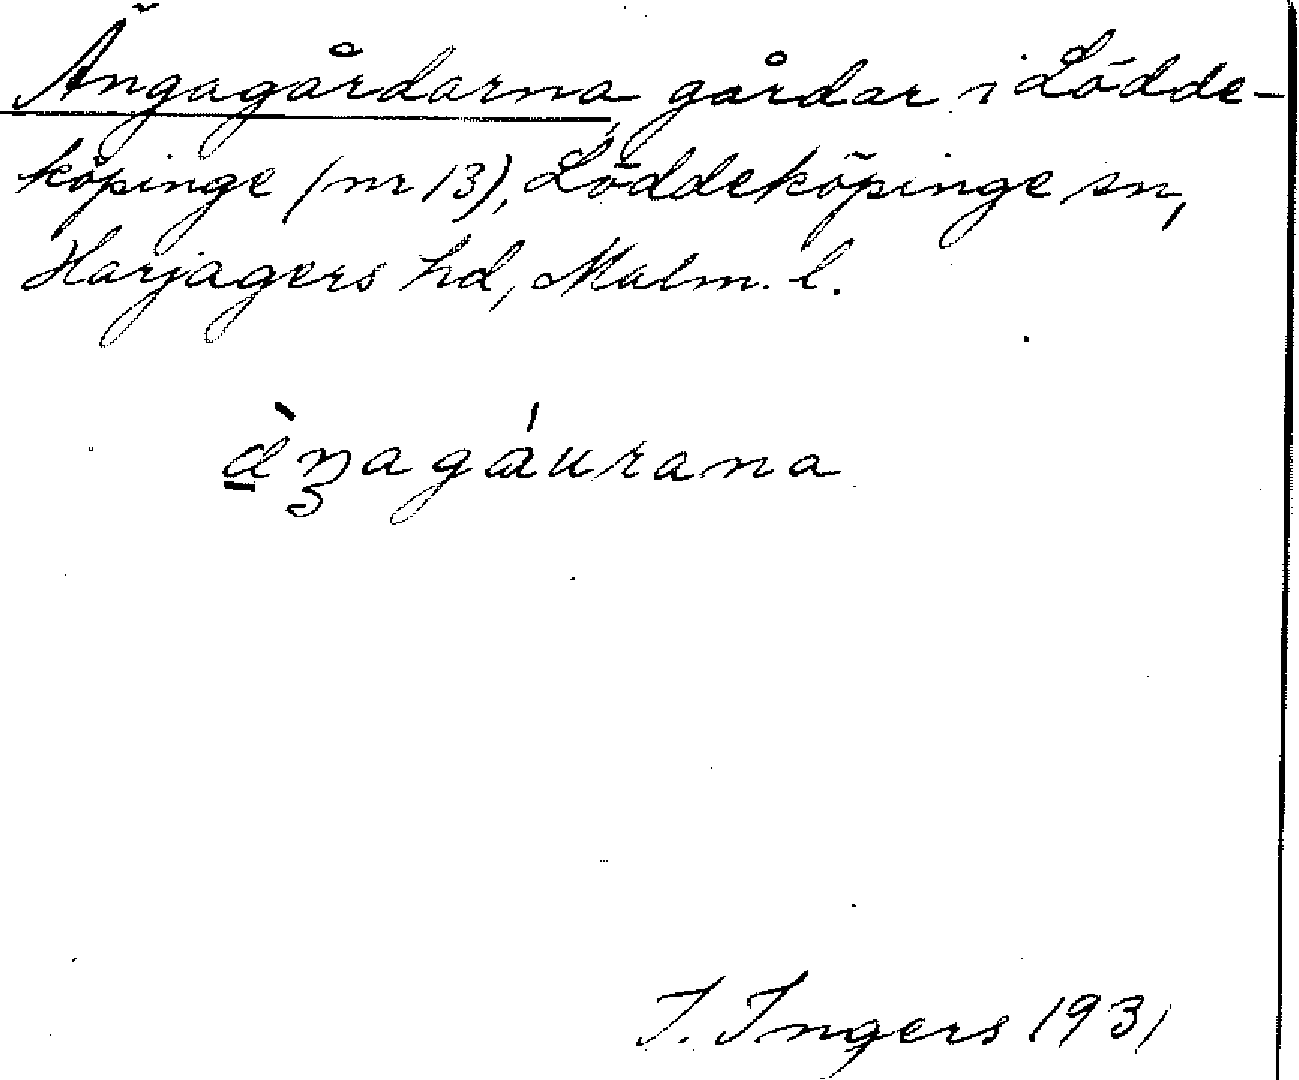 Ängagårdarna gårdar i Lödde-
köpinge (nr 13), Löddeköpinge sn,
Harjagers hd, Malm. l.
à̱ŋagáurana
I. Ingers 1931